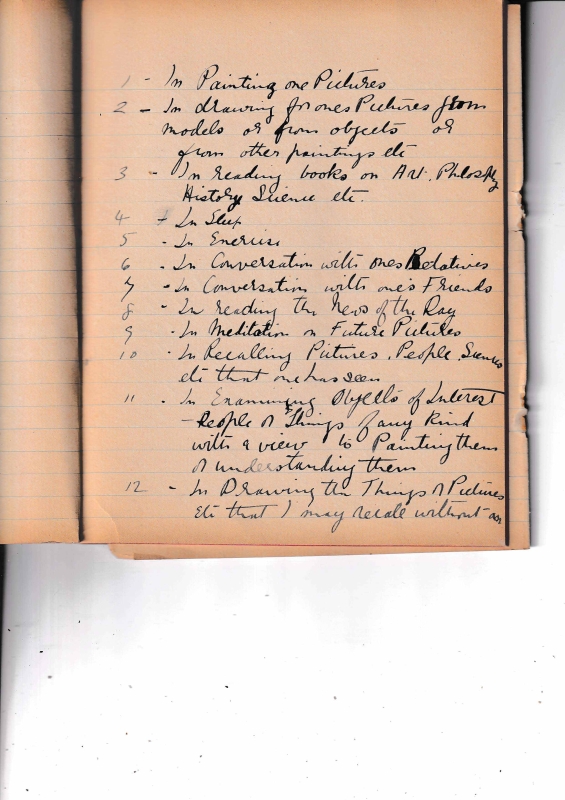 1 - In Painting one Pictures
2 - In drawing for ones Pictures from
models or from objects or
from other paintings etc
3 - In reading books on Art. Philosphy
History Science etc.
4 - In Sleep
5 - In Exercise
6 - In Conversation with ones Relatives
7 - In Conversation with one's Friends
8 - In reading the News of the Day
9 - In Meditation on Future Pictures
10 - In Recalling Pictures, People, Scenes
etc that one has seen
11 - In Examining Objects of Interest
- People or Things of any Kind
with a view to Painting them
or understanding them
12 - In Drawing the Things or Pictures
etc that I may recall without